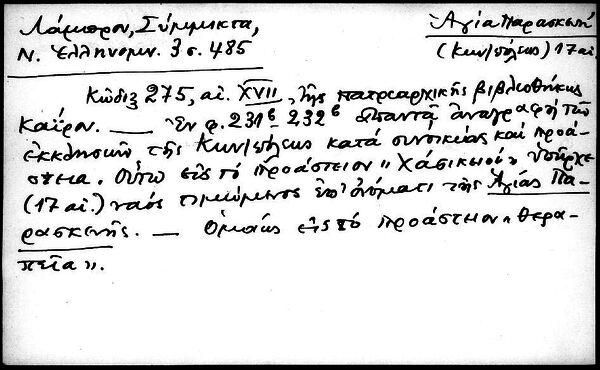 Λάμπρον, Σύμμικτα,
Ν. Ἑλληνομν. 3 σ. 485
Ἁγία Παρασκευή
(Κων/πόλεως) 17 αἰ.
Κῶδιξ 275, αἰ. XVII, τῆς πατριαρχικῆς βιβλιοθήκης
Καΐρου. — Ἐν φ. 231β - 232β ἀπαντᾷ ἀναγραφὴ τῶν
ἐκκλησιῶν τῆς Κων/πόλεως κατὰ συνοικίας καὶ προά-
στεια. Οὕτω εἰς τὸ προάστειον "Χάσικιοϊ" ὑπῆρχε
(17 αἰ.) ναὸς τιμώμενος ἐπ' ὀνόματι τῆς Ἁγίας Πα-
ρασκευῆς. — Ὁμοίως εἰς τὸ προάστειον "Θερα-
πεῖα".